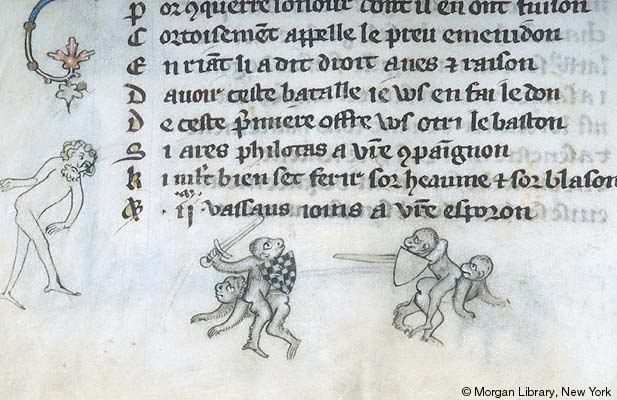 P or ɔquerre lonour dont il en ont fuison
C ortoisemēt appelle le preu emenidon
E n riāt li a dit droit aues ⁊ raison
D auoir ceste batalle ie ws en fai le don
D e ceste p̄miere offre ws otri le baston
S i ares philotas a vr̄e ɔpaīgnon
K i ml̄t bien set ferir sor heaume ⁊ sor blason
· ij · vassaus ioins a vr̄e esporon
© Morgan Library, New York